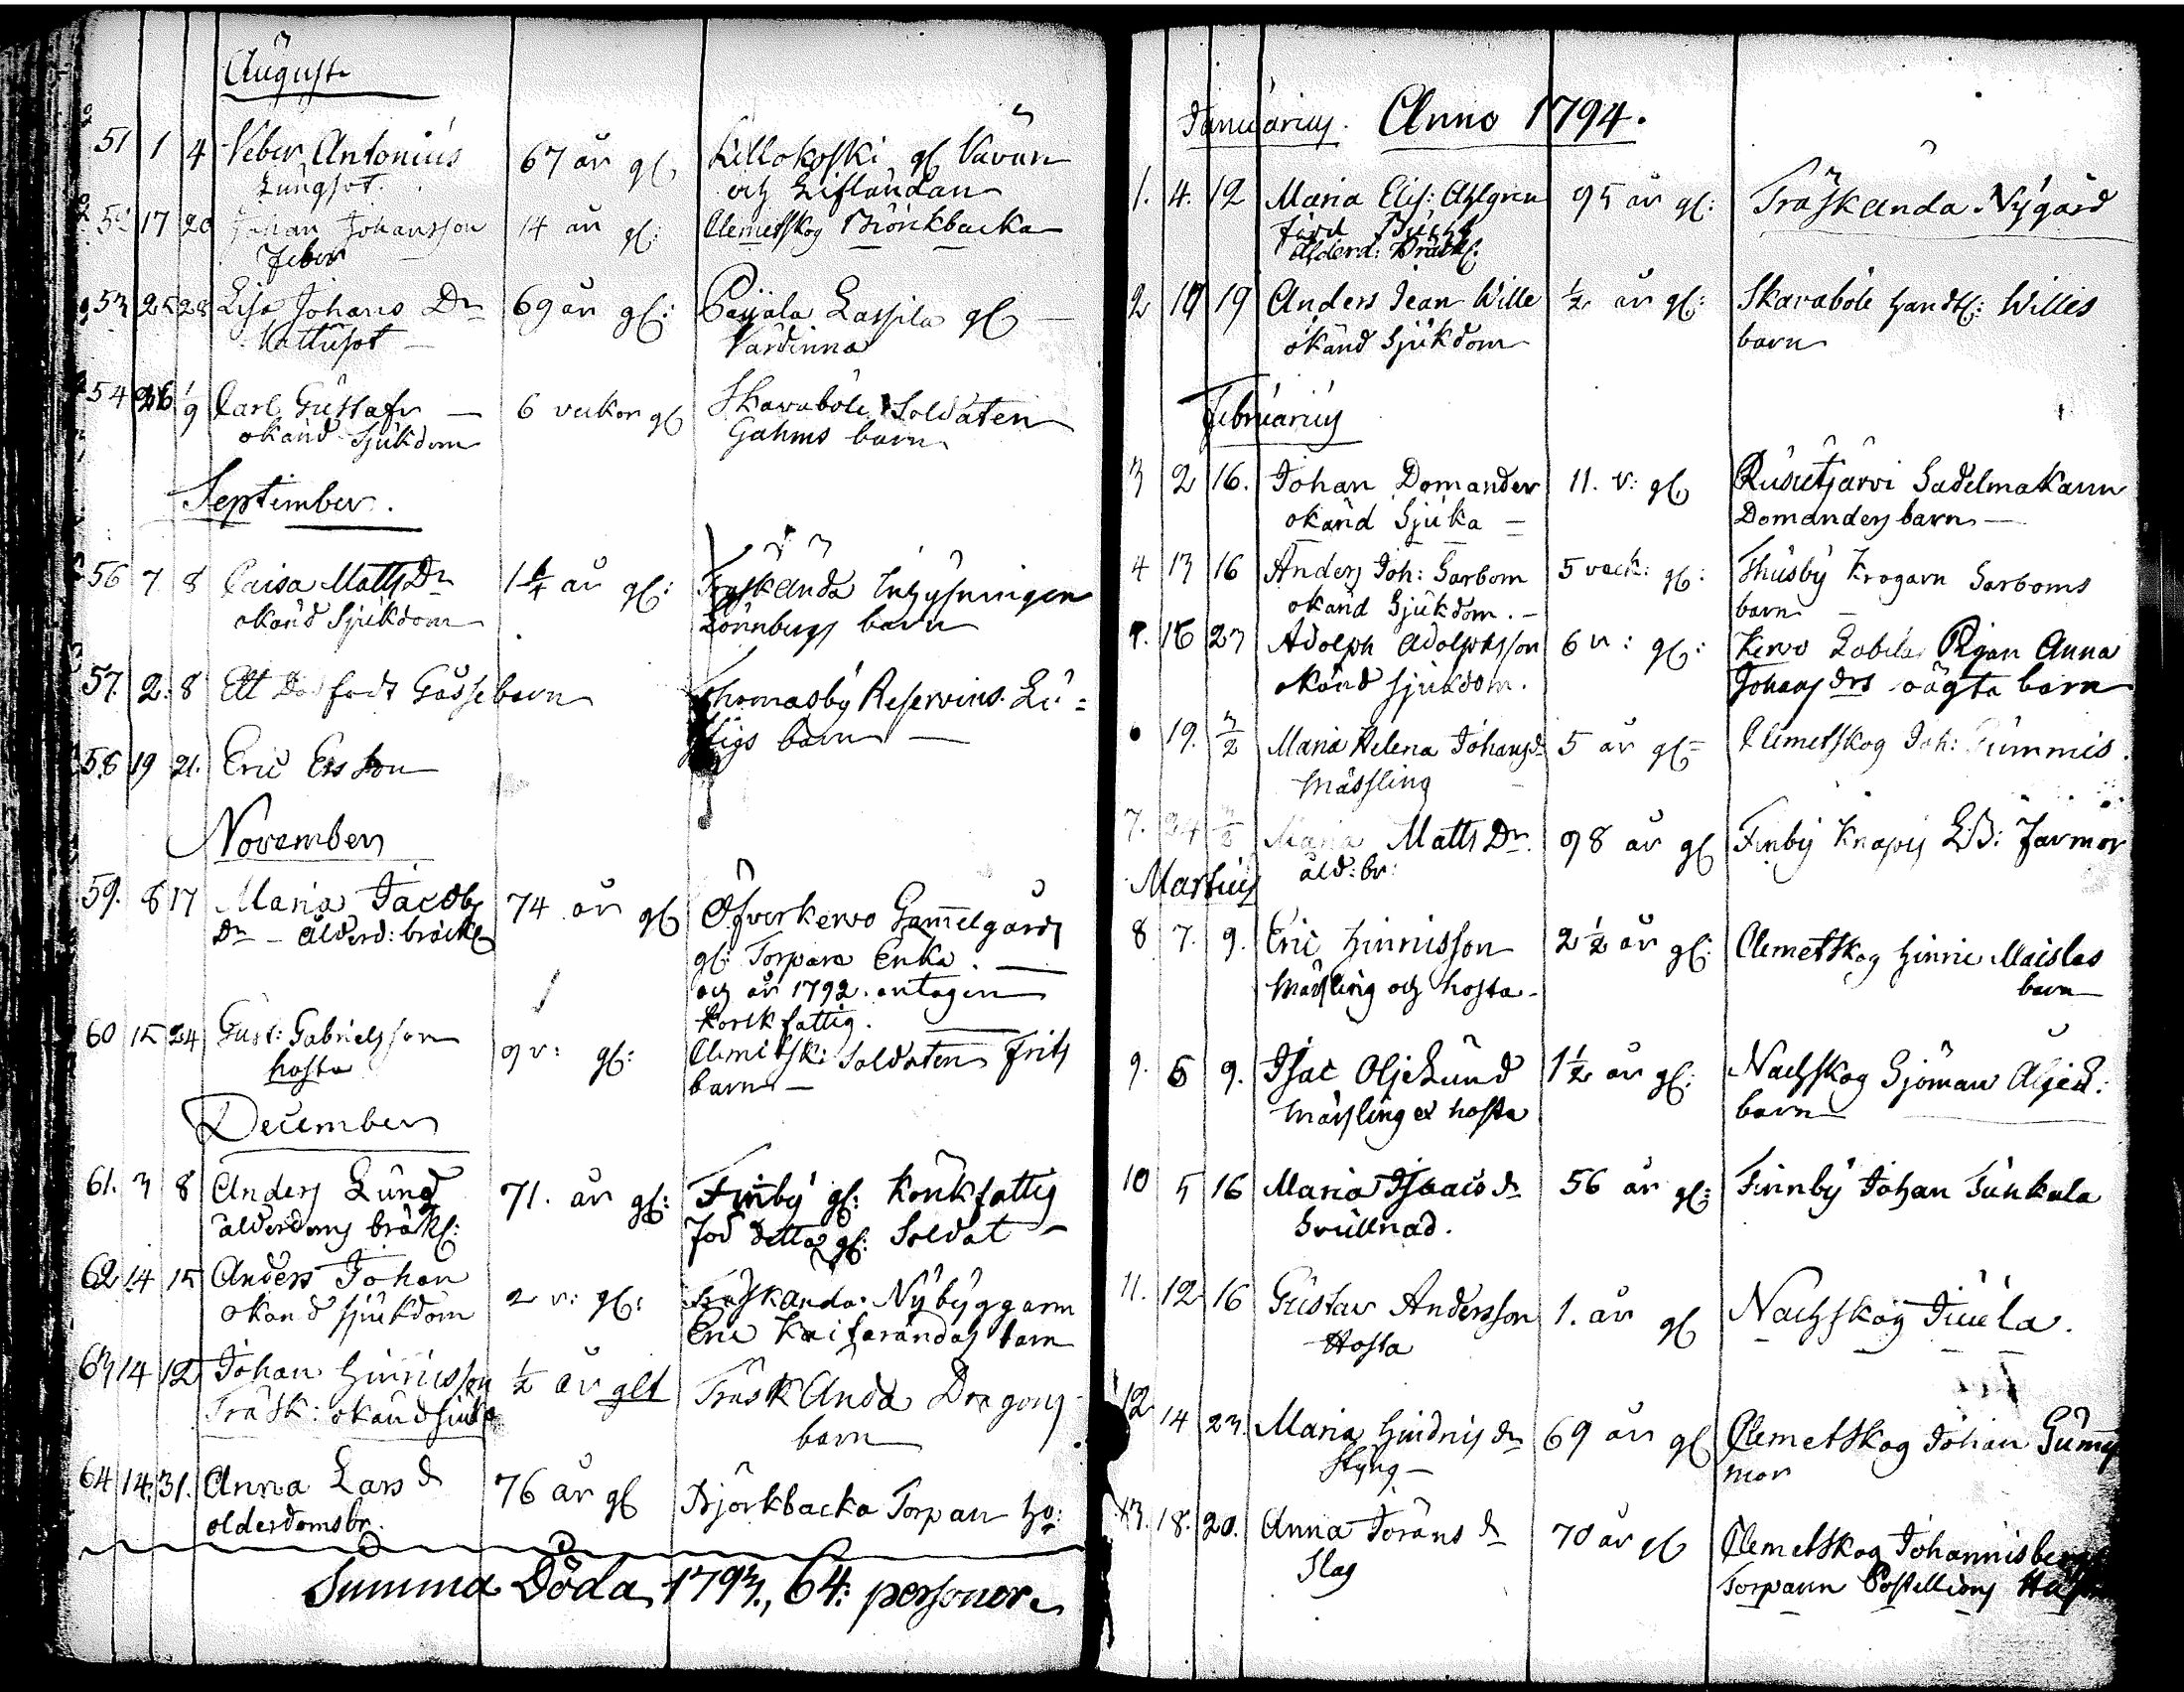 August
51 1 4 Veber Antonius 67 år gl. Killokoski gl Väväre
Lungsot. och Liflandar
52 17 20 Johan Johansson 14 år gl: Clemetskog Biörkbacka
Feber
53 25 28 Lisa Johans Dr 69 år gl: Paijala Lassila gl
Vattusot Värdinna
54 26 1/9 Carl Gustafs 6 veckor gl Skavaböle Soldaten
okänd Sjukdom Gahms barn
September.
56 7 8 Caisa Matts Dr 1 1/4 år gl: Träskända Inhysningen
okänd Sjukdom Lönnbergs barn
57. 2. 8 Ett Dödfödt Gossebarn Thomasby Reservens. Lu=
stigs barn
58 19 21. Eric Ersson
November
59. 8 17 Maria Jacobs 74 år gl Öfverkervo Gammelgårds
Dr ålderd: bräckl gl: Torpare Enka.
och år 1792. antagen
Kyrkfattig.
60 15 24 Gust: Gabrielsson 9 v: gl: Clemetsk: Soldaten Frits
hosta barn
December
61. 3 8 Anders Lund 71. år gl: Finby gl: Kyrkfattig
ålderdoms bräkl: föd detta gl: Soldat
62 14 15 Anders Johan 2 v: gl: Träskända: Nybyggaren
okänd sjukdom Eric barn
63 14 12 Johan Hinricsson 1/2 år glt Träskända Dragons
Träsk: okänd sjuka barn
64 14. 31. Anna Lars d 76 år gl Björkbacka Torpare
olderdomsbr.
Summa Döda 1793., 64: personer.
Januarius. Anno 1794.
1. 4. 12 Maria Elis: Ahlgren 95 år gl: Träskända Nygård
född
Ålderd: Bräckl:
2 10 19 Anders Jean Wille 1/2 år gl: Skavaböle Handtl: Willes
okänd Sjukdom barn
Februarius
3 2 16. Johan Domander 11. v: gl Rusutjärvi Sadelmakaren
okänd Sjuka Domanders barn
4 13 16 Anders Joh: Sarbom 5 veck: gl: Thusby Krogaren Sarboms
okänd Sjukdom. barn
5. 16 23 Adolph Adolphsson 6 v: gl: Kervo Labila Pigan Anna
okänd sjukdom. Johans drs oägta barn
19. 3/2 Maria Helena Johansd 5 år gl Clemetskog Joh: Gummis.
Mässling
7. 24 3/2 Maria Matts Dr. 98 år gl Finby Knapas farmor
åld: br:
Martius
8 7. 9. Eric Hinricsson 2 1/2 år gl: Clemetskog Hinric Maislas
Mässling och hosta barn
9. 6 9. Isac Oljelund 1 1/2 år gl: Nackskog Sjöman Oljel:
Mässling et hosta barn
10 5 16 Maria Isaacs d 56 år gl: Finnby Johan Tunkala
Svullnad.
11. 12 16 Gustav Andersson 1. år gl Nackskog Juula.
Hosta
12 14 23. Maria Hindrics dr 69 år gl Clemetskog Johan Gums
Styng mor
13. 18. 20. Anna Görans d 70 år gl Clemetskog Johannisberg
Slag Torparen Postillions